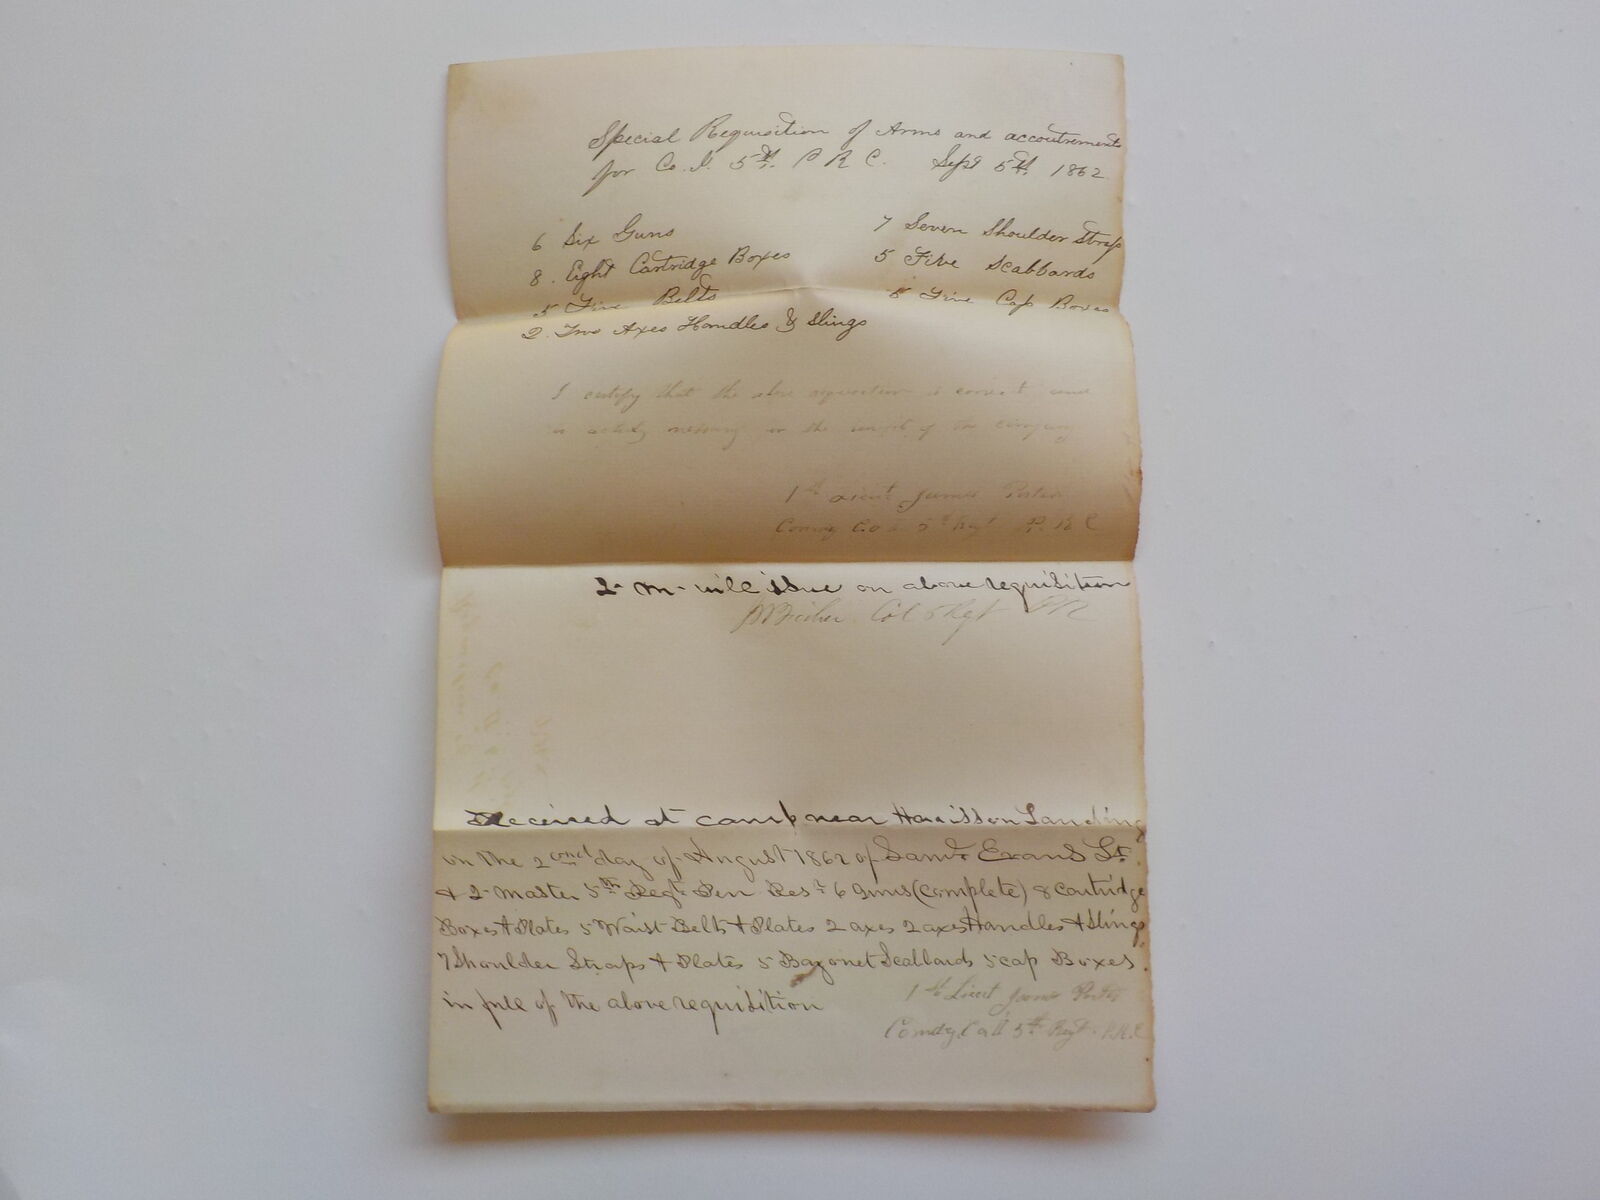 Special Requisition of Arms and accoutrements
for Co. I. 5th. P R C. Sept 5th, 1862.
6 Six Guns
7 Seven Shoulder Straps
8. Eight Cartridge Boxes
5 Five Scabbards
5 Five Belts
5 Five Cap Boxes
2. Two Axes Handles & Slings
I certify that the above requisition is correct and
is actually necessary for the benefit of the company
1st Lieut James Porter
Comdg Co 5th Regt P. R C
2- M- will issue on above requisition
Col 5 Regt
Received at camp near Harisson Landing
on the 2cond day of August 1862 of Saml. Evans Lt.
& 2- Master 5th Regt- Pen Res- 6 guns (complete) 8 cartridge
Boxes & Plates 5 Waist Belts & Plates 2 axes 2 axes Handles & Slings
7 Shoulder Straps & Plates 5 Bayonet Scabbards 5 cap Boxes
in full of the above requisition
1st Lieut James Porter
Comdg. Co 5th Regt. P.R.C